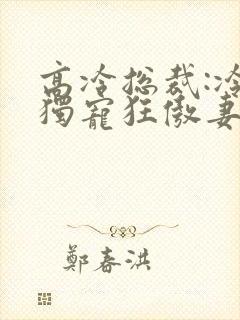 高冷总裁:冷
獨寵狂傲妻
鄭春洪